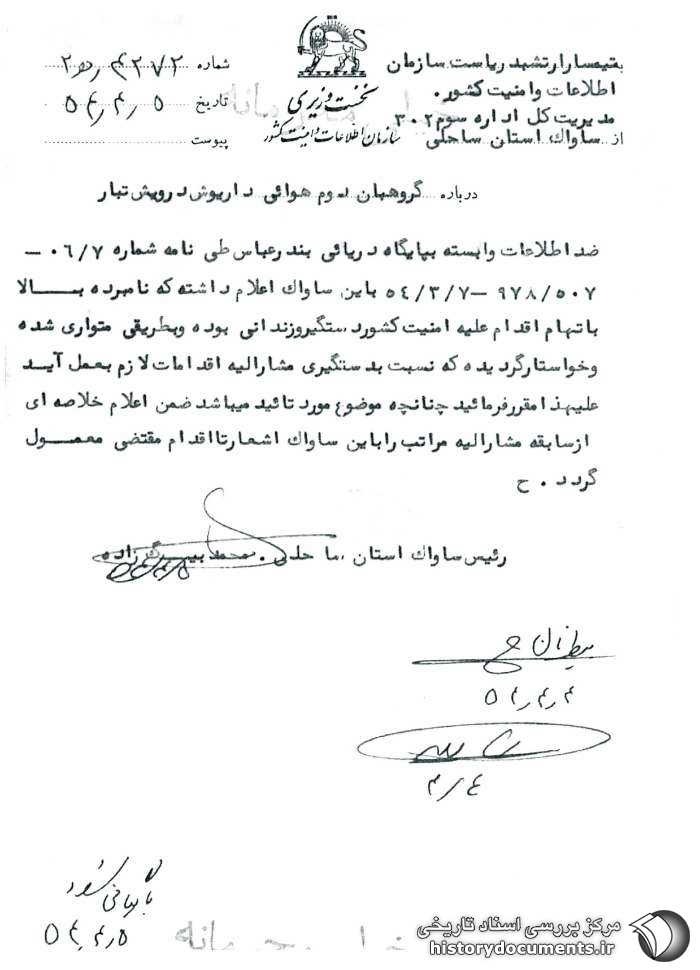 بتیمسار ارتشبد ریاست سازمان
اطلاعات و امنیت کشور .
مدیریت کل اداره سوم ۳۰۲
از ساواك استان ساحلی
نخست وزیری
سازمان اطلاعات و امنیت کشور
شماره
تاریخ ۵۴/۴/۵
پیوست
درباره گروهبان دوم هوائی داریوش درویش تبار
ضد اطلاعات وابسته بپایگاه دریائی بندرعباس طی نامه شماره ۰۶/۷ –
۹۷۸/۵۰۷ – ۵۴/۳/۷ باین ساواك اعلام داشته که نامبرده بــالا
باتهام اقدام علیه امنیت کشور دستگیر وزندانی بوده و بطریقی متواری شده
وخواستار گردیده که نسبت بدستگیری مشارالیه اقدامات لازم بعمل آیـد
علیهذا مقررفرمائید چنانچه موضوع مورد تائید میباشد ضمن اعلام خلاصه ای
ازسابقه مشارالیه مراتب راباین ساواك اشعار تااقدام مقتضی معمـول
گردد . ح
رئیس ساواك استان ساحلی . محمد بیـگ زاده
۵۴/۴/۴
۴/۴
بایگانی شود
۵۴/۴/۵
مرکز بررسی اسناد تاریخی
historydocuments.ir